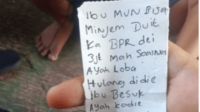 Ibu MUN BISA
Minjem Duit
Ka BPR dei
3jt mah
Ayah Loba
Hutang didie
Ibu Besuk
Ayah kadie